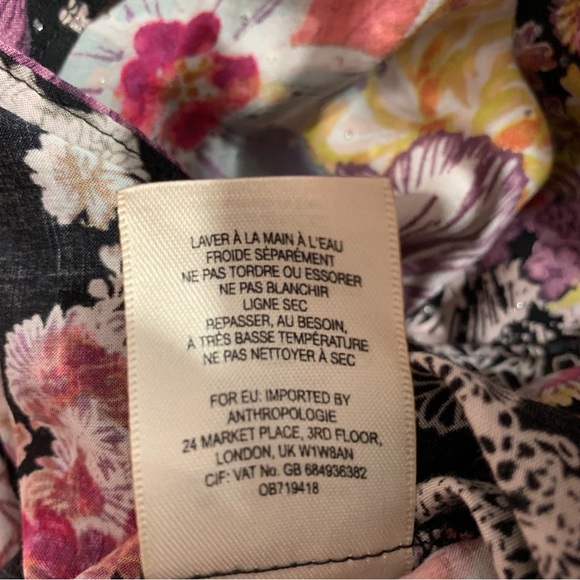 LAVER À LA MAIN À L'EAU
FROIDE SÉPARÉMENT
NE PAS TORDRE OU ESSORER
NE PAS BLANCHIR
LIGNE SEC
REPASSER, AU BESOIN,
À TRÈS BASSE TEMPÉRATURE
NE PAS NETTOYER À SEC
FOR EU: IMPORTED BY
ANTHROPOLOGIE
24 MARKET PLACE, 3RD FLOOR,
LONDON, UK W1W8AN
CIF: VAT No. GB 684936382
OB719418